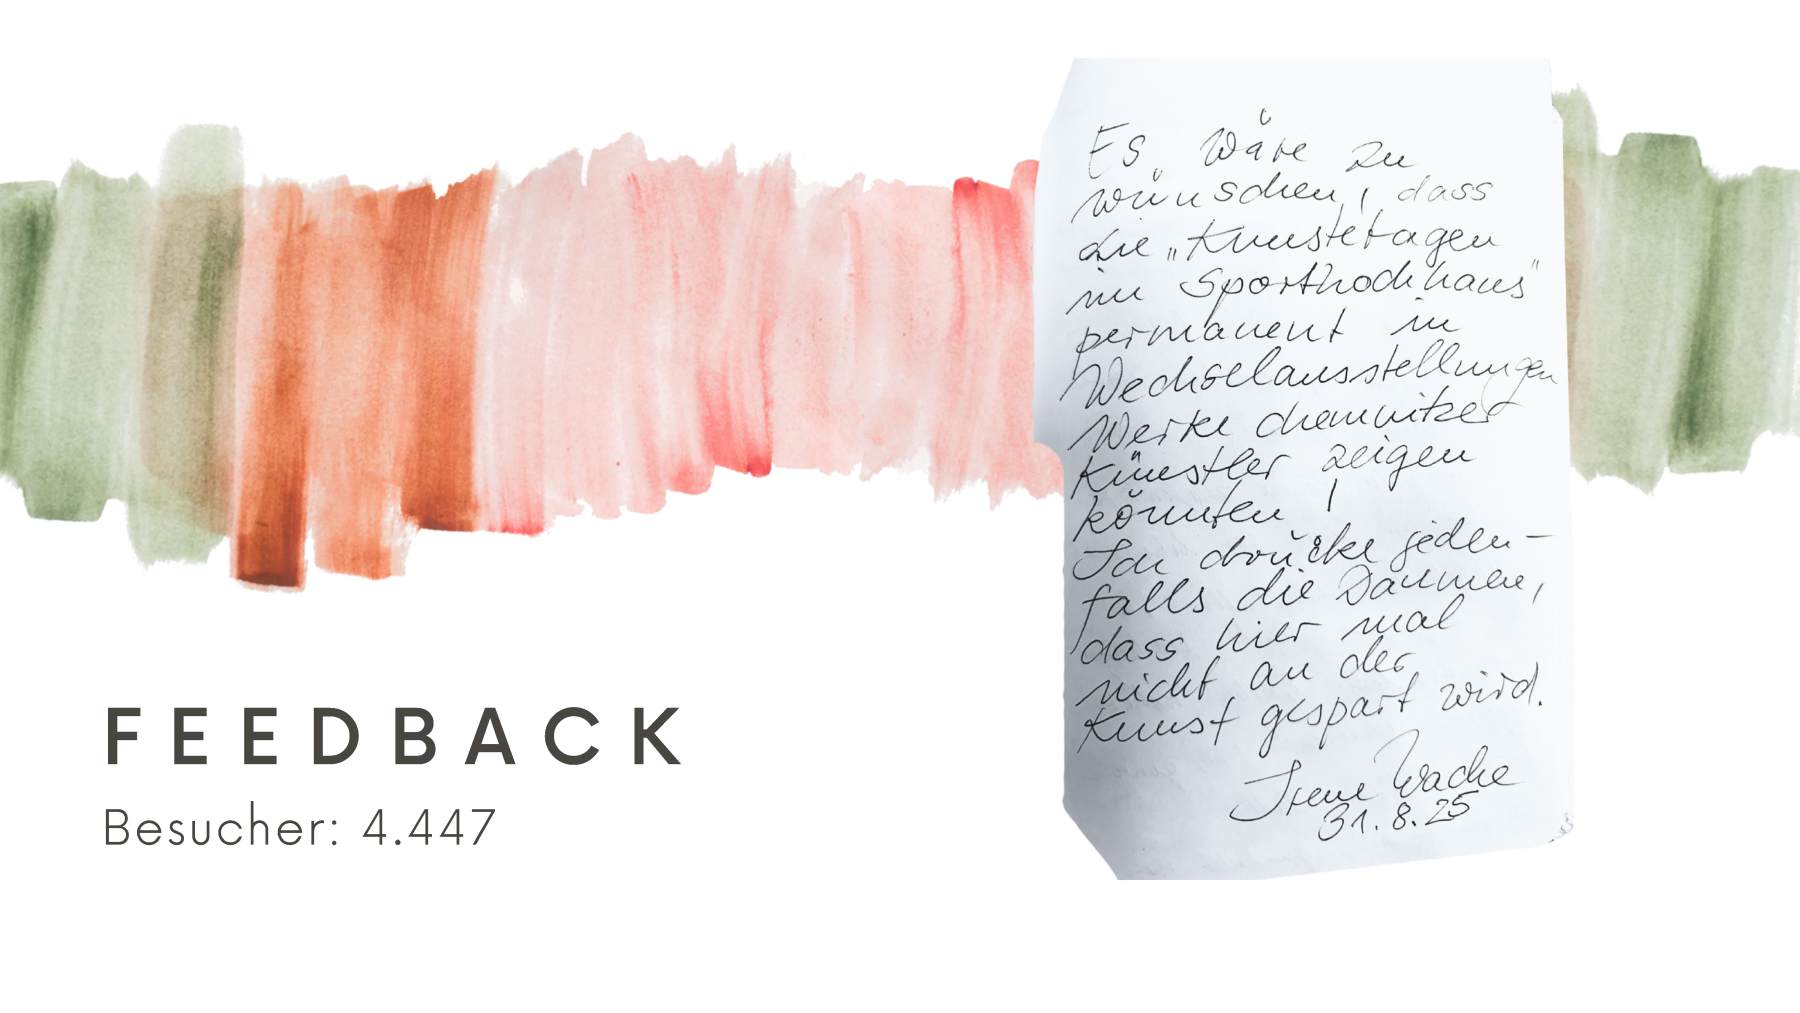 Es wäre zu
wünschen, dass
die „Kunstetagen
im Sporthochhaus"
permanent in
Wechselausstellungen
Werke chemnitzer
Künstler zeigen
könnten!
Ich drücke jeden-
falls die Daumen,
dass hier mal
nicht an der
Kunst gespart wird.
Irene Wache
31.8.25
FEEDBACK
Besucher: 4.447